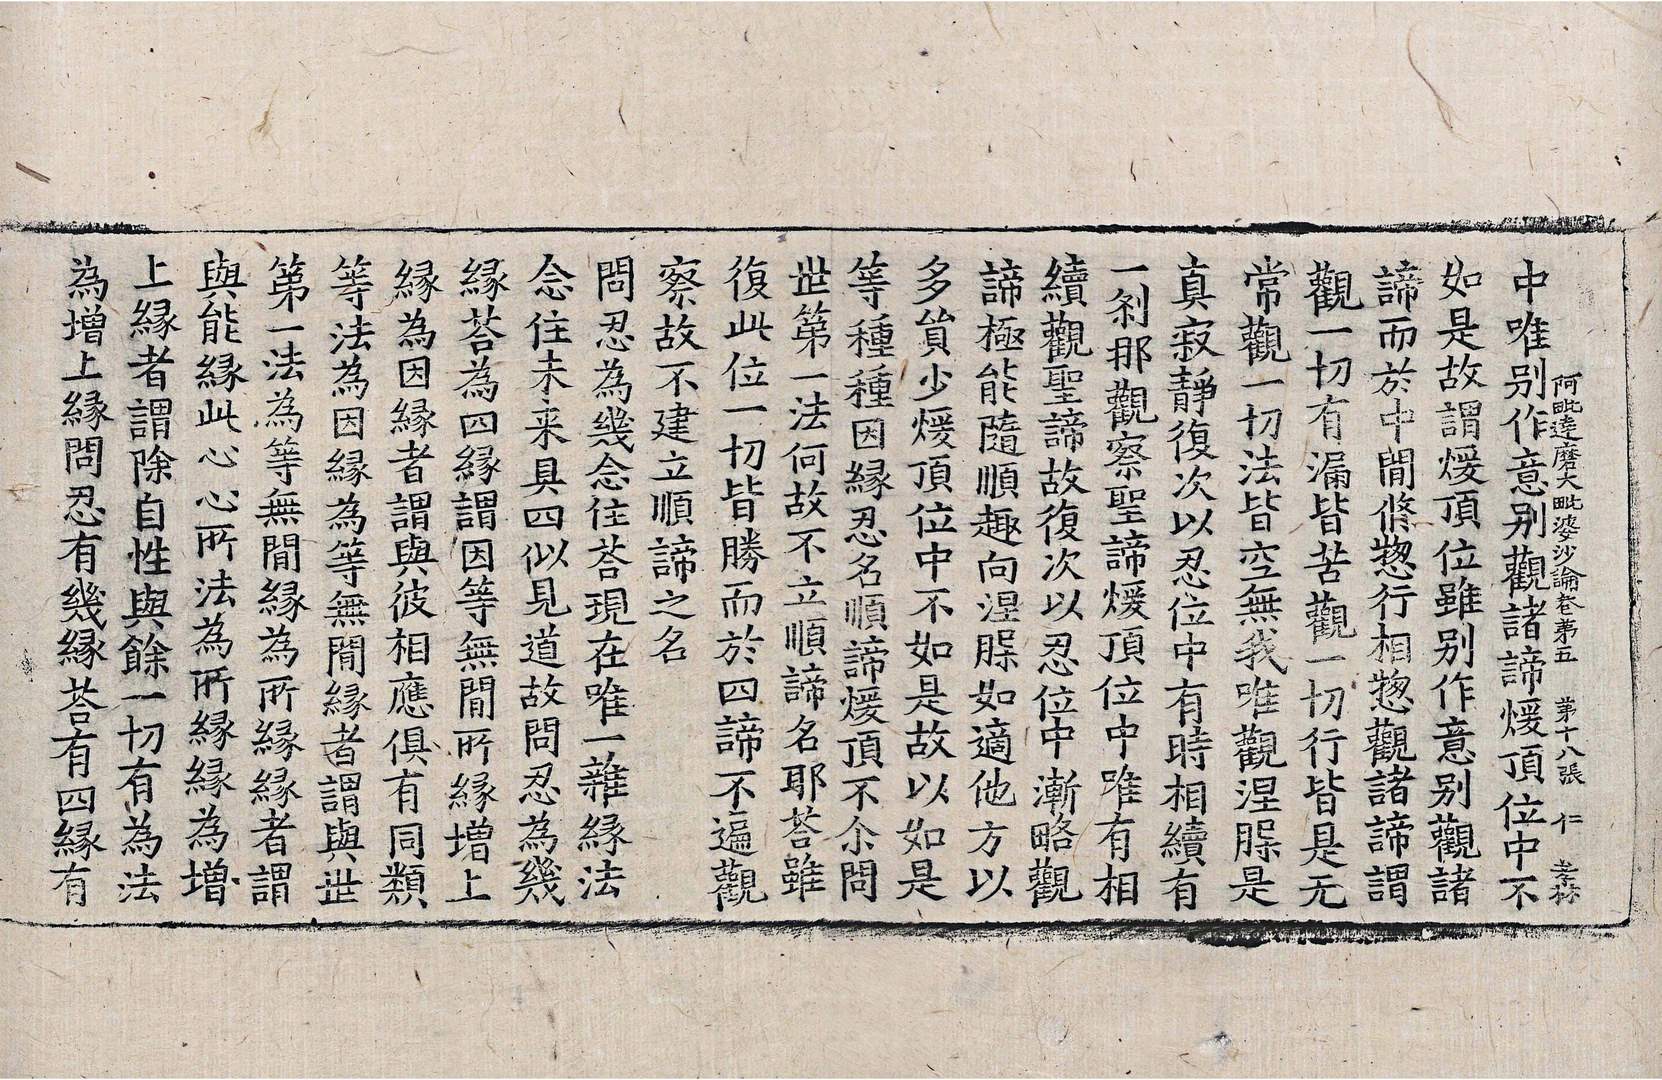 阿毗達磨大毗婆沙論卷第五 第十八張 仁 孝林
中唯别作意别觀諸諦煖頂位中不
如是故謂煖頂位雖别作意别觀諸
諦而於中閒脩惣行相惣觀諸諦謂
觀一切有漏皆苦觀一切行皆是无
常觀一切法皆空無我唯觀涅腂是
真寂靜復次以忍位中有時相續有
一刹那觀察聖諦煖頂位中唯有相
續觀聖諦故復次以忍位中漸略觀
諦極能隨順趣向涅腂如適他方以
多貿少煖頂位中不如是故以如是
等種種因縁忍名順諦煖頂不尒問
世第一法何故不立順諦名耶荅雖
復此位一切皆勝而於四諦不遍觀
察故不建立順諦之名
問忍為幾念住荅現在唯一雜縁法
念住未来具四似見道故問忍為幾
縁荅為四縁謂因等無閒所縁增上
縁為因縁者謂與彼相應俱有同類
等法為因縁為等無閒縁者謂與世
第一法為等無閒縁為所縁縁者謂
與能縁此心心所法為所縁縁為增
上縁者謂除自性與餘一切有為法
為增上縁問忍有幾縁荅有四縁有